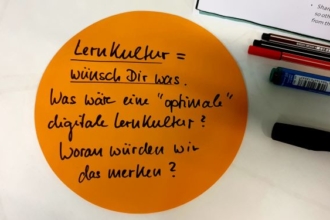 Lernkultur =
wünsch Dir was.
Was wär eine "optimale"
digitale Lernkultur?
Woran würden wir
das merken?